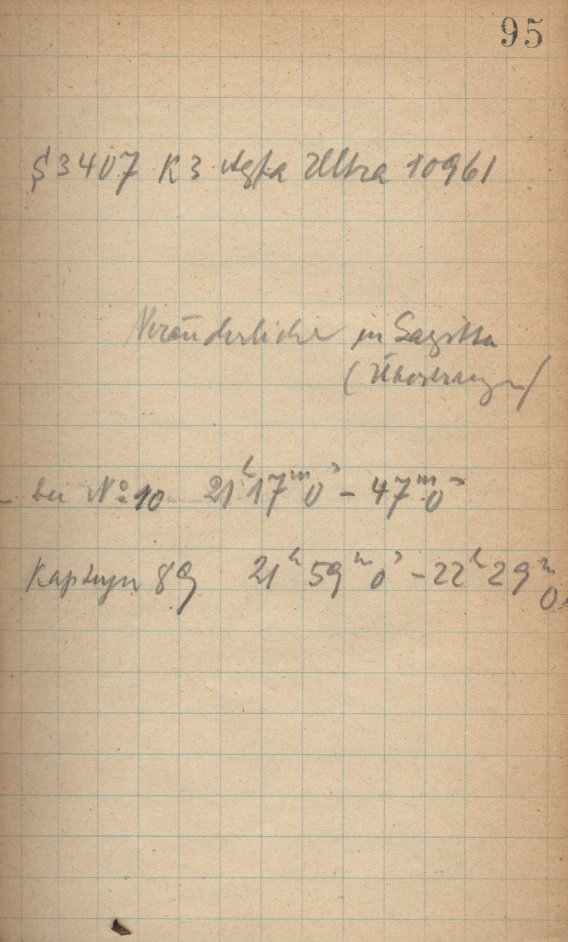 95
S 3407 K3 Agfa Ultra 10961
Veränderliche in Sagitta
bei No 10 21h 17m 0s - 47m 0s
Kapteyn 89 21h 59m 0s - 22h 29m
0s